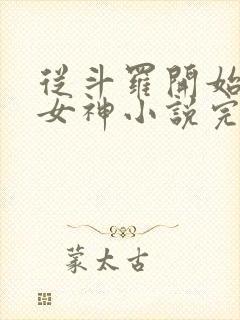 從斗羅開始
女神小說完
蒙太古